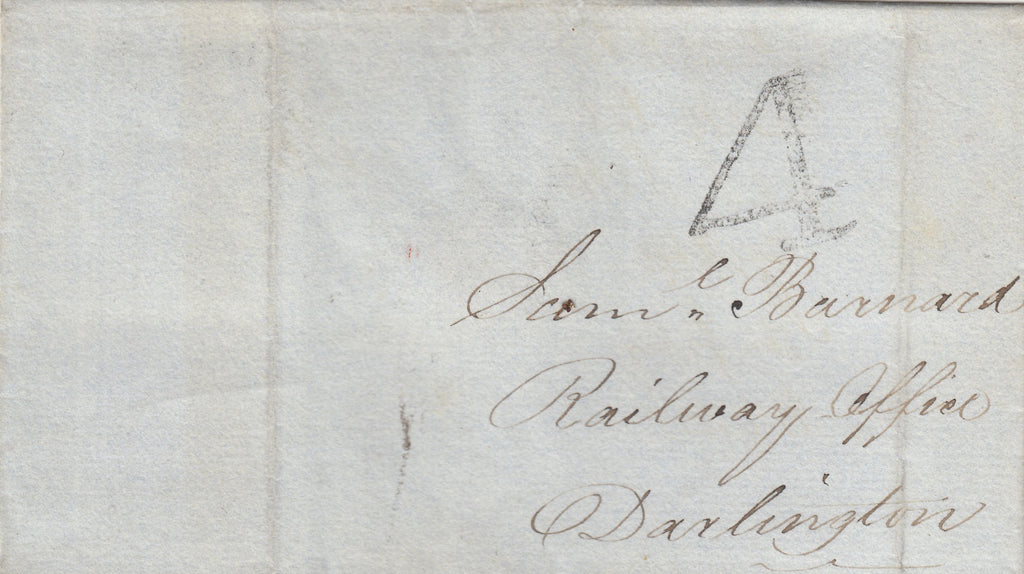 4
Saml. Barnard
Railway Office
Darlington